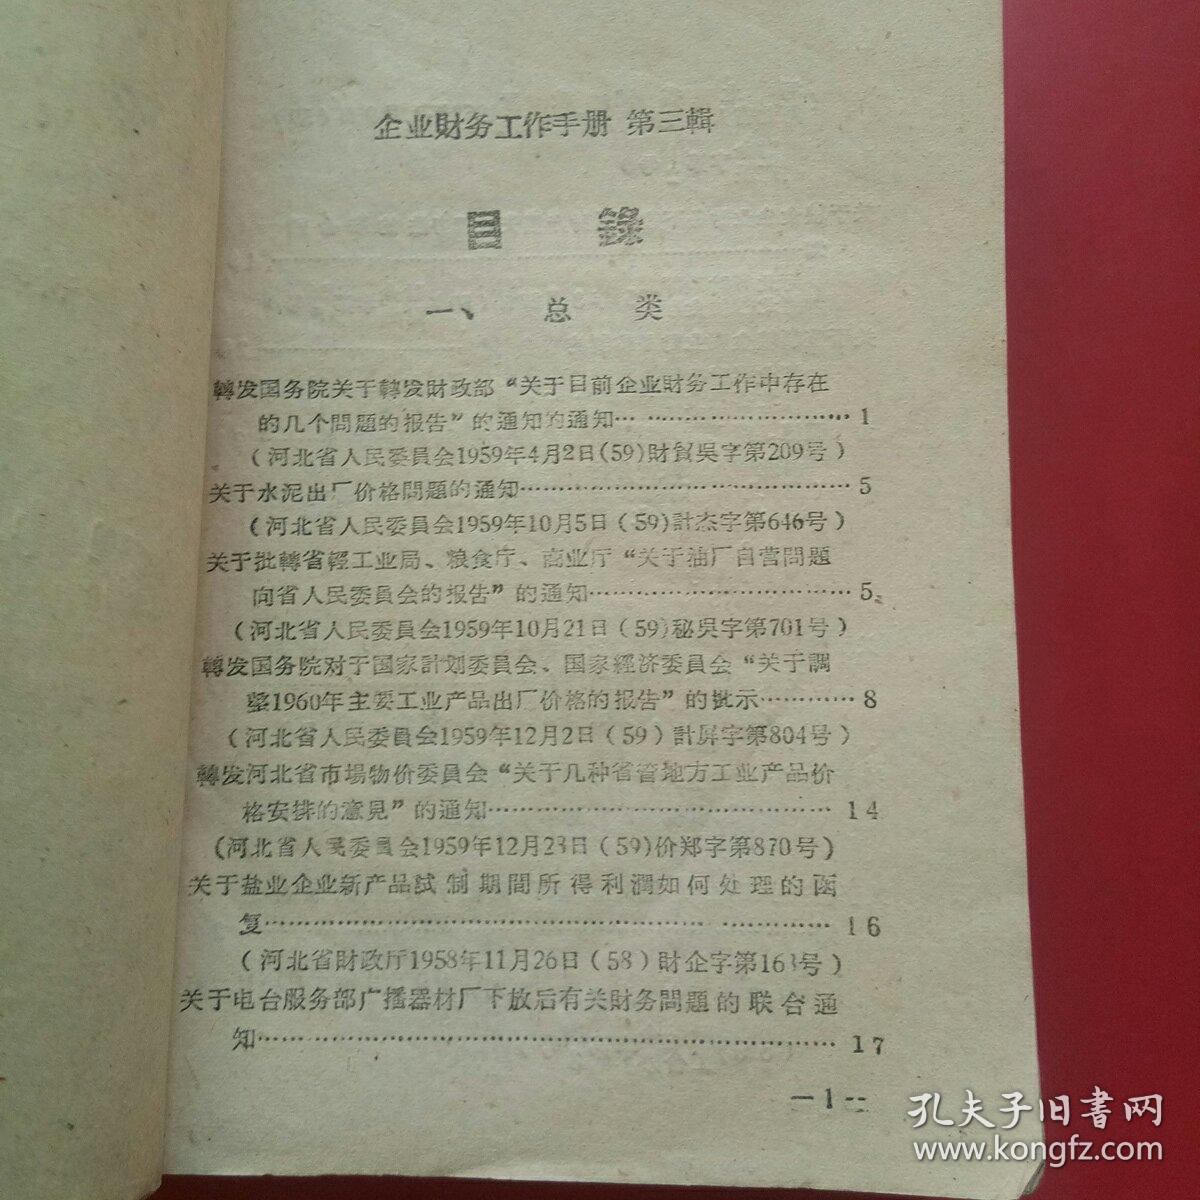 企业財务工作手册 第三輯
目 錄
一、 总 类
轉发国务院关于轉发財政部“关于目前企业財务工作中存在
的几个問題的报告”的通知的通知…………………1
(河北省人民委員会1959年4月2日(59)財貿吳字第209号)
关于水泥出厂价格問題的通知………………………………5
(河北省人民委員会1959年10月5日(59)計杰字第646号)
关于批轉省輕工业局、粮食厅、商业厅“关于油厂自营問題
向省人民委員会的报告”的通知…………………………5
(河北省人民委員会1959年10月21日(59)秘吳字第701号)
轉发国务院对于国家計划委員会、国家經济委員会“关于調
整1960年主要工业产品出厂价格的报告”的批示…………8
(河北省人民委員会1959年12月2日(59)計屏字第804号)
轉发河北省市場物价委員会“关于几种省管地方工业产品价
格安排的意見”的通知………………………………14
(河北省人民委員会1959年12月23日(59)价郑字第870号)
关于盐业企业新产品試制期間所得利潤如何处理的函
复……………………………………………………16
(河北省財政厅1958年11月26日(58)財企字第 号)
关于电台服务部广播器材厂下放后有关財务問題的联合通
知……………………………………………………17
—1—
孔夫子旧書网
www.kongfz.com